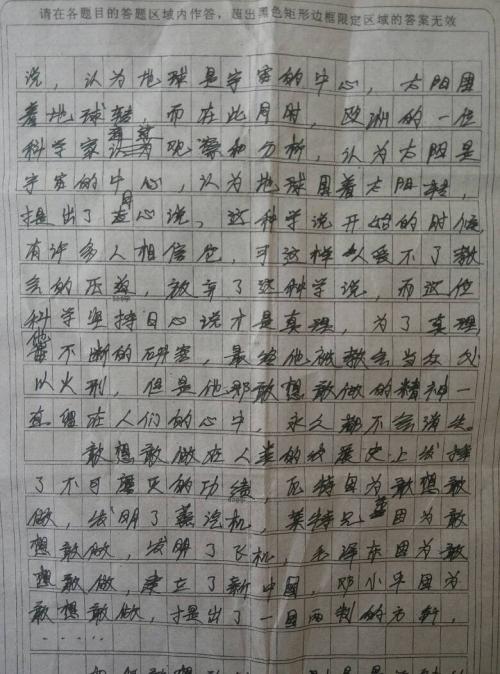 请在各题目的答题区域内作答，超出黑色矩形边框限定区域的答案无效
说，认为地球是宇宙的中心，太阳围
着地球转，而在此月时，欧洲的一位
科学家着 观察和分析，认为太阳是
宇宙的中心，认为地球围着太阳转，
提出了日心说。这种学说开始的时候，
有许多人相信他，可这样人受不了教
会的压迫，放弃了这种学说，而这位
科学坚持日心说才是真理，为了真理，
他不断的研究，最终他被教会当众处
以火刑，但是他那敢想敢做的精神一
直留在人们的心中，永久都不会消失。
敢想敢做在人类的发展史上发挥
了不可磨灭的功绩，瓦特因为敢想敢
做，发明了蒸汽机，莱特兄弟因为敢
想敢做，发明了飞机，毛泽东因为敢
想敢做，建立了新中国，邓小平因为
敢想敢做，提出了一国两制的方针，
......